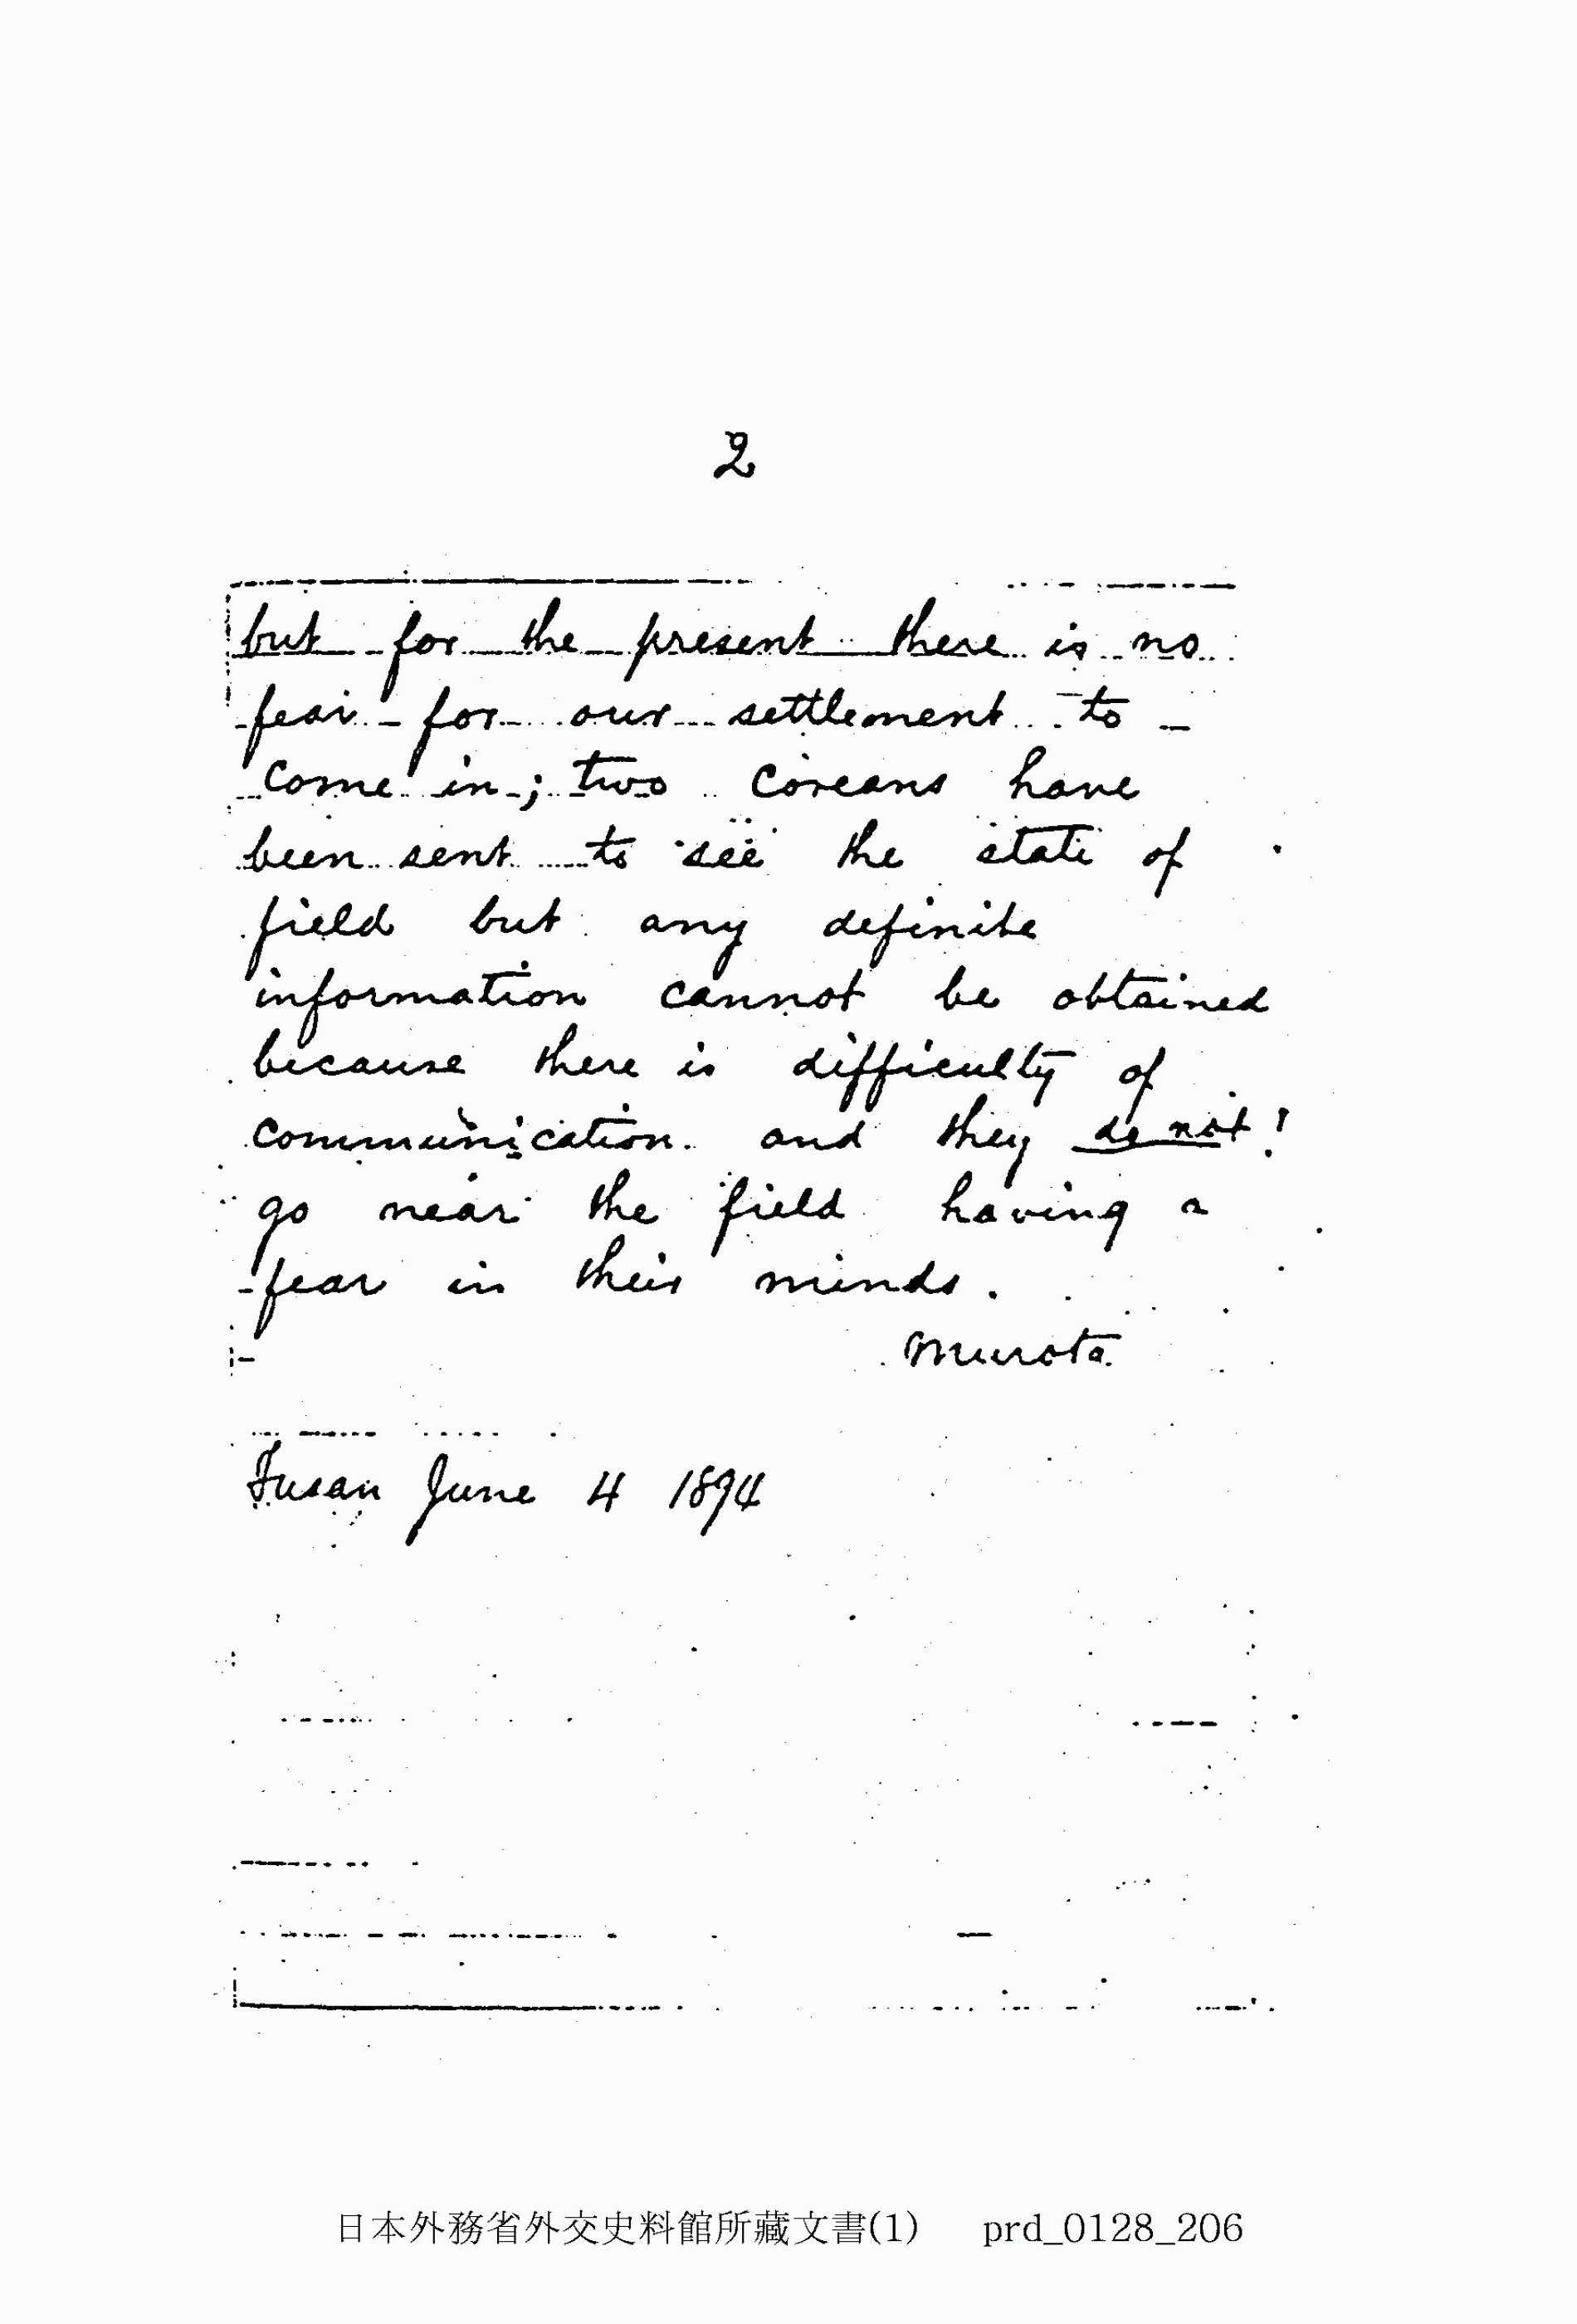 2
but for the present there is no
fear for our settlement to
come in; two Coreans have
been sent to see the state of
field but any definite
information cannot be obtained
because there is difficulty of
communication. and they do not
go near the field having a
fear in their minds.
Murota.
Fusan June 4 1894
日本外務省外交史料館所藏文書(1) prd_0128_206